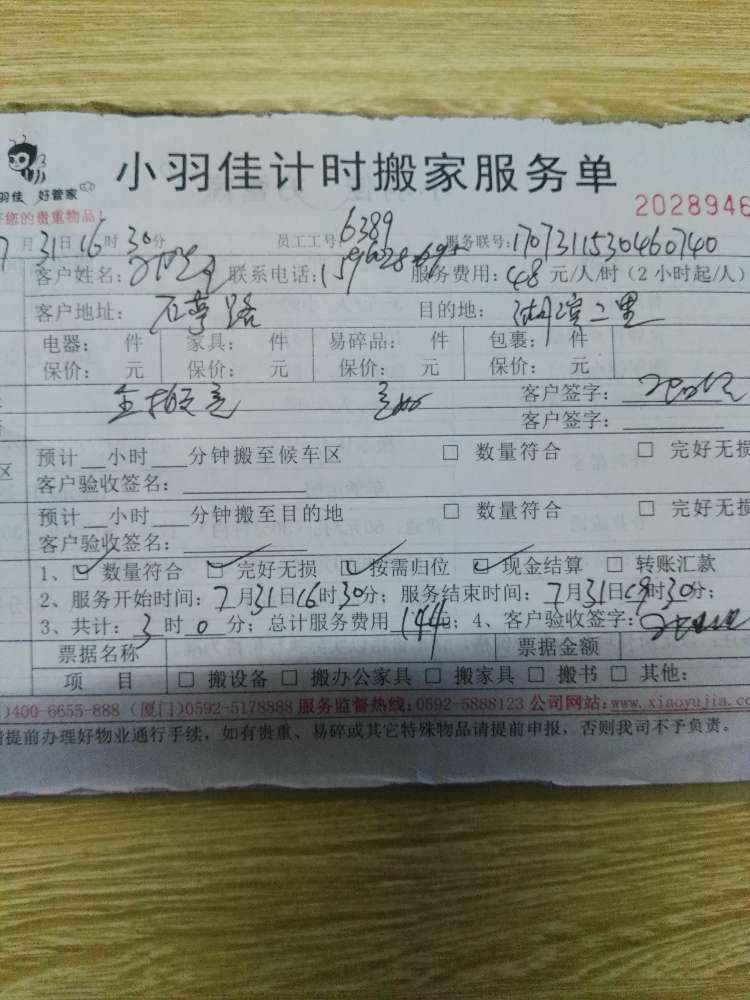 小羽佳计时搬家服务单
羽佳 好管家
2028946
好您的贵重物品！
7月31日16时30分 员工工号：6389 服务联号：1707311530460740
客户姓名： 联系电话： 服务费用：48元/人/时（2小时起/人）
客户地址： 路 目的地：湖滨二里
电器： 件 家具： 件 易碎品： 件 包裹： 件
保价： 元 保价： 元 保价： 元 保价： 元
客户签字：
客户签字：
区 预计__小时___分钟搬至候车区 □ 数量符合 □ 完好无损
客户验收签名：
预计__小时___分钟搬至目的地 □ 数量符合 □ 完好无损
客户验收签名：
1、☑数量符合 ☑完好无损 ☑按需归位 ☑现金结算 □ 转账汇款
2、服务开始时间：7月31日16时30分；服务结束时间：7月31日19时30分；
3、共计：3时0分；总计服务费用144元；4、客户验收签字：
票据名称 票据金额
项 目 □ 搬设备 □ 搬办公家具 □ 搬家具 □ 搬书 □ 其他：
)400-6655-888（厦门)0592-5178888 服务监督热线：0592-5888123 公司网站：www.xiaoyujia.co
请提前办理好物业通行手续，如有贵重、易碎或其它特殊物品请提前申报，否则我司不予负责。